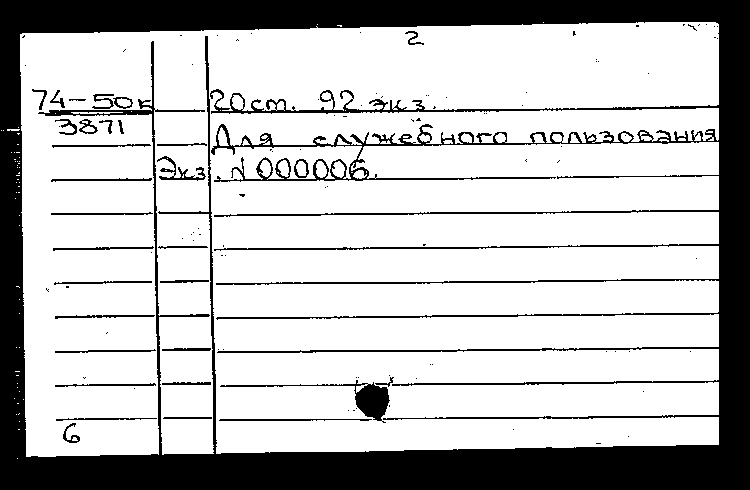 2
74-50к 20 ст. 92 экз.
3871
Для служебного пользования
Экз. N 000006.
6